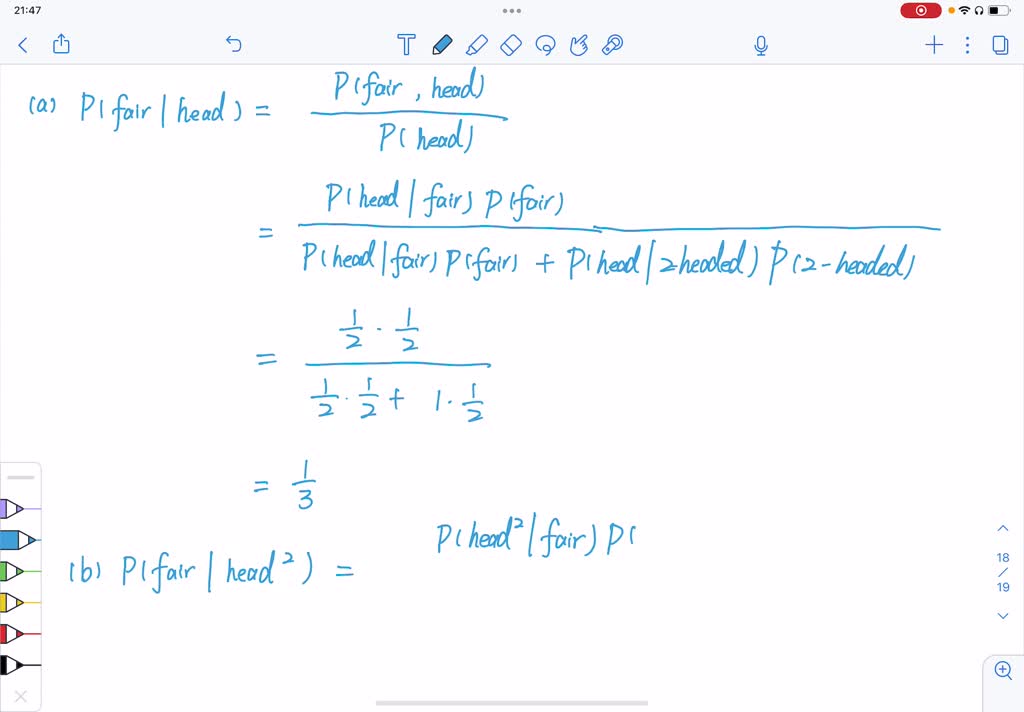 21:47
(a) P(fair | head) = P(fair, head) / P(head)
= P(head | fair) P(fair) / P(head | fair) P(fair) + P(head | 2headed) P(2-headed)
= 1/2 · 1/2 / 1/2 · 1/2 + 1 · 1/2
= 1/3
(b) P(fair | head²) = P(head² | fair) P(
18
/
19